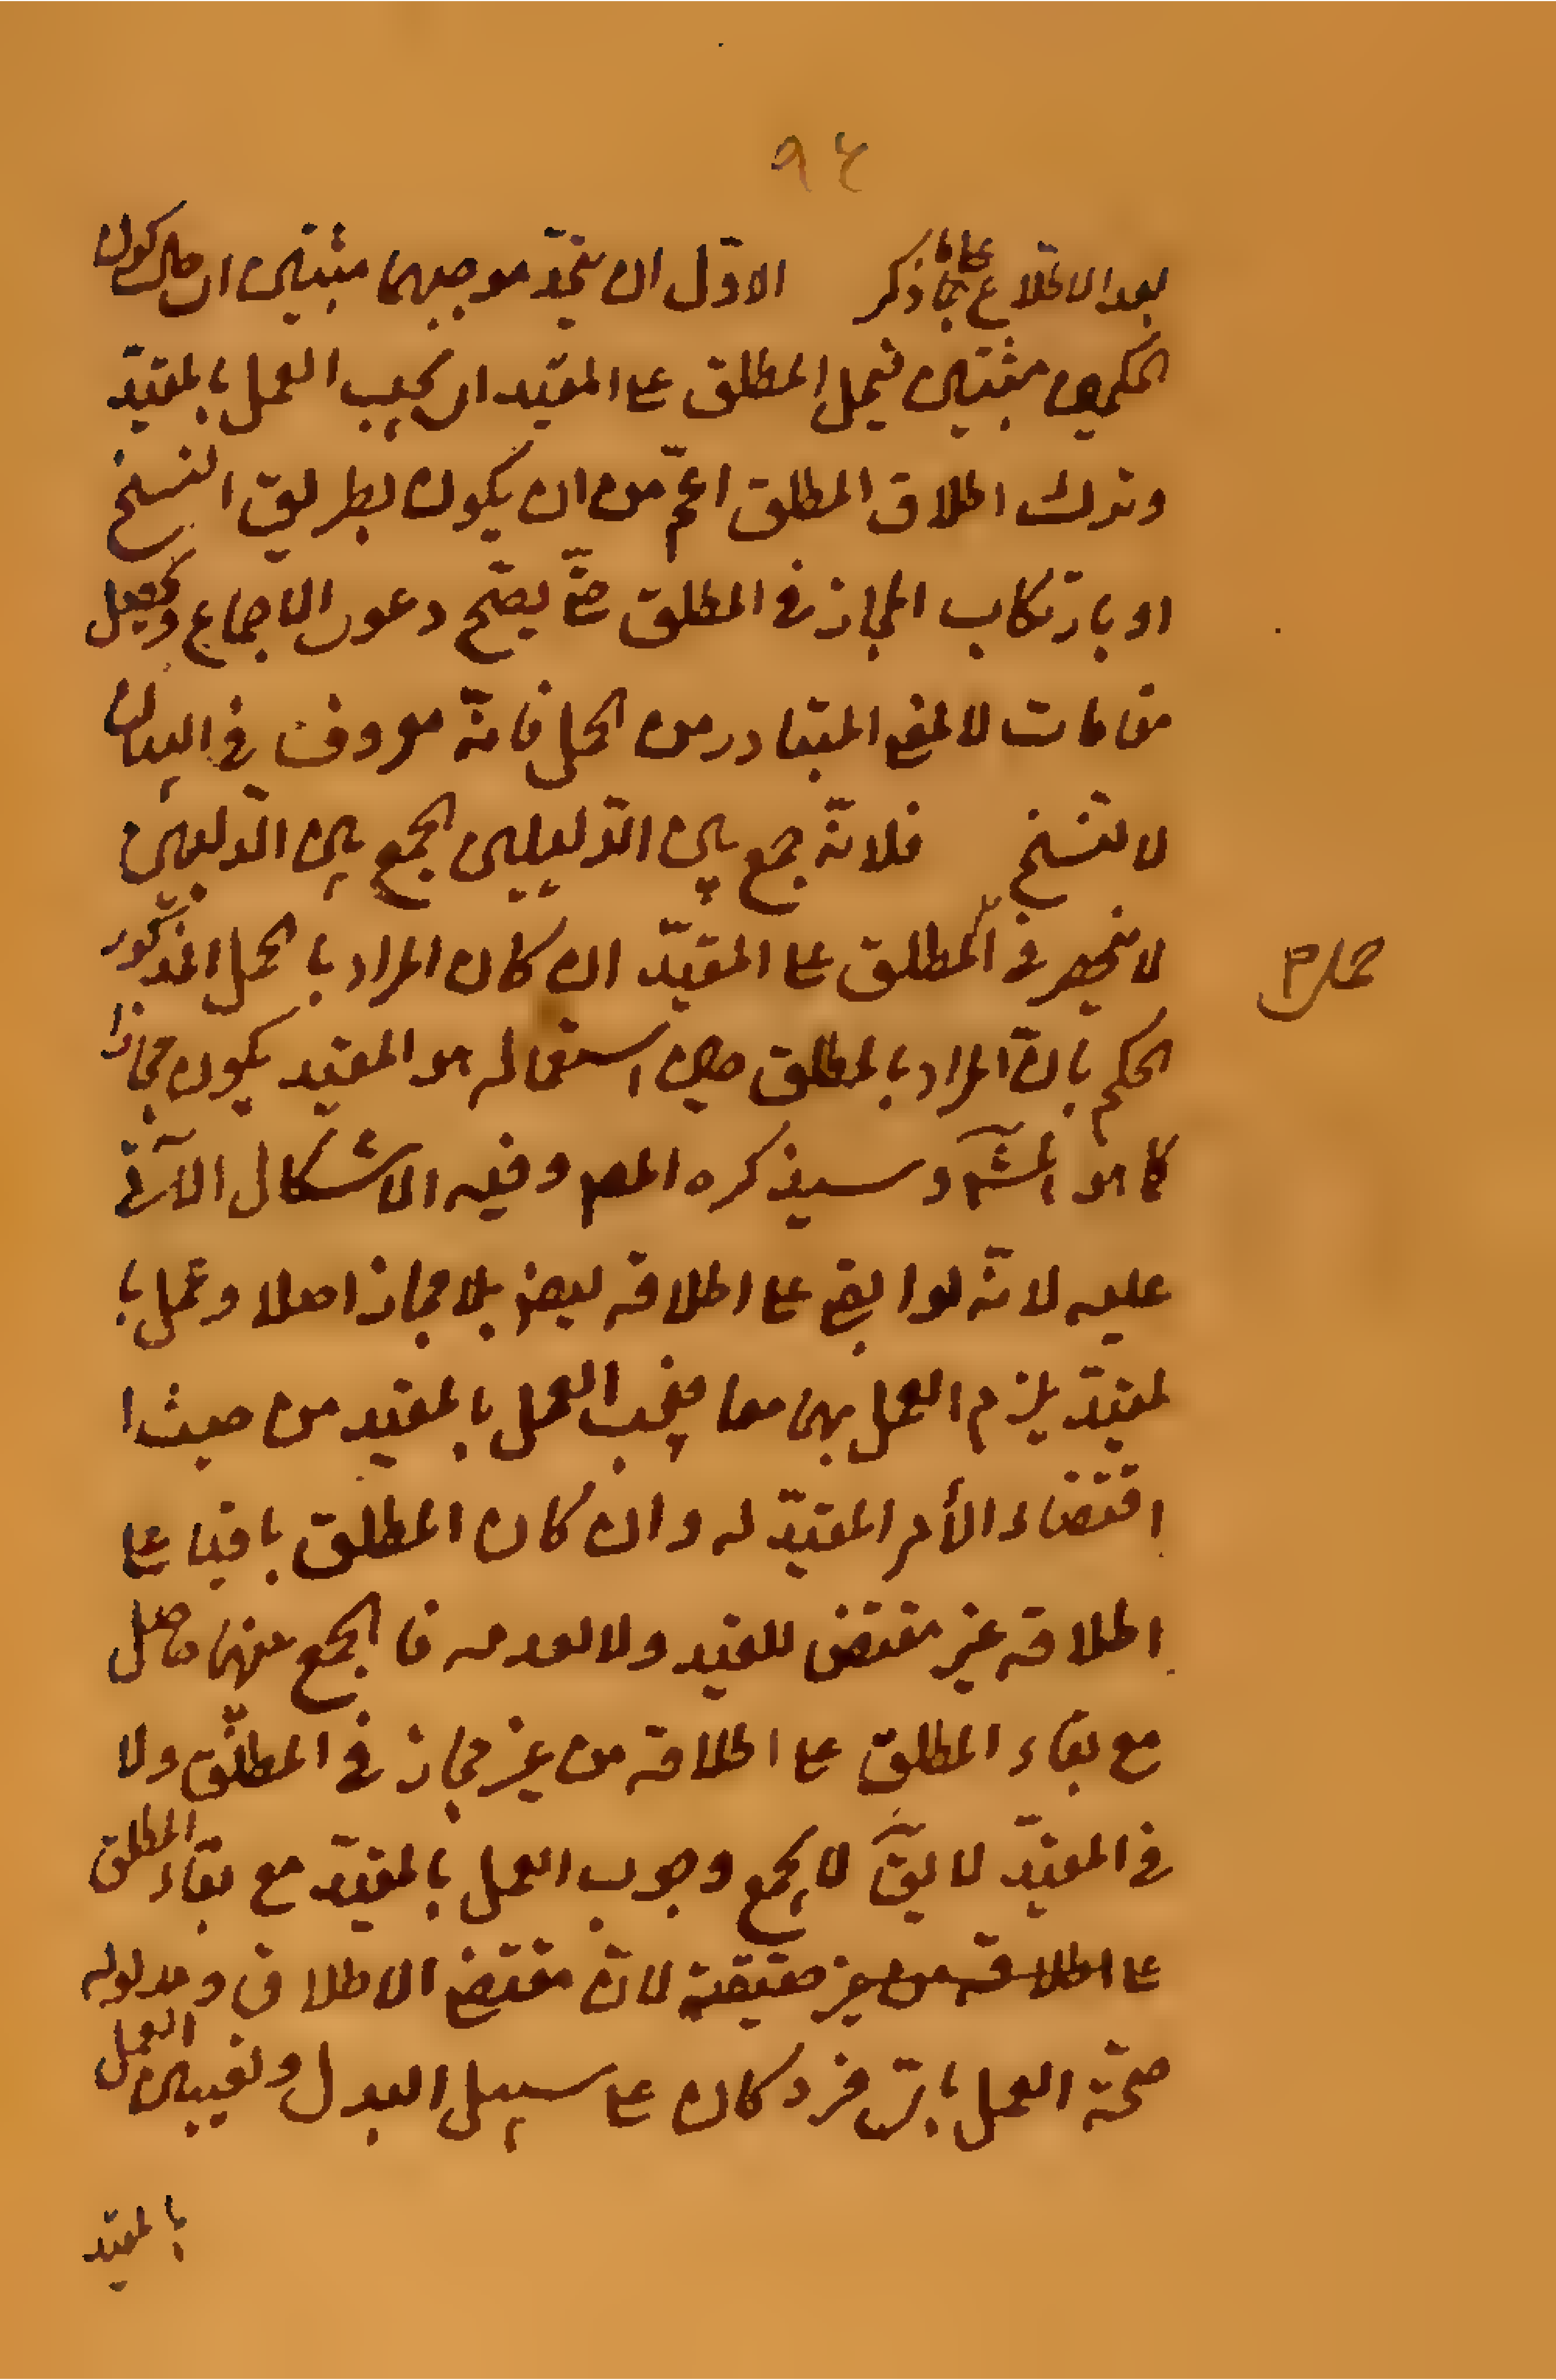 ٩٤
بعد الاطلاع على ما ذكر الاوّل ان يتّحد موجبهما مثبتين اى حال كون
الحكمين مثبتين فيحمل المطلق على المقيد اى يجب العمل بالمقيّد
وترك اطلاق المطلق اعمّ من ان يكون بطريق النسخ
او بارتكاب المجاز فى المطلق حتّى يصحّ دعوى الاجماع ويحصل
مقامات لا لمعنى المتبادر من الحمل فانّه معروف فى البيان
لا لنسخ فلانّه جمع بين الدّليلين الجمع بين الدّليلين
لا ينحصر فى المطلق على المقيّد ان كان المراد بالحمل المذكور
حمل م
الحكم بانّ المراد بالمطلق حين استعماله هو المقيد يكون مجازا
كما هو المشهَ وسيذكره المصـ وفيه الاشكال الآتى
عليه لانّه لو ابقى على اطلاقه ليصير بلا مجاز اصلا وعمل با
لمقيّد يلزم العمل بهما معا فيجب العمل بالمقيد من حيث ا
اقتضاء الأمر المقيّد له وان كان المطلق باقيا على
اطلاقه غير مقتض للقيد ولا لعدمه فالجمع منهما حاصل
مع بقاء المطلق على اطلاقه من غير مجاز فى المطلق ولا
فى المقيّد لا يقَ لا يجمع وجوب العمل بالمقيّد مع بقاء المطلق
على اطلاقه من غير حقيقية لانّ مقتضى الاطلاق ومدلوله
صحّة العمل باىّ فرد كان على سبيل البدل وتعيين العمل
بالمقيد